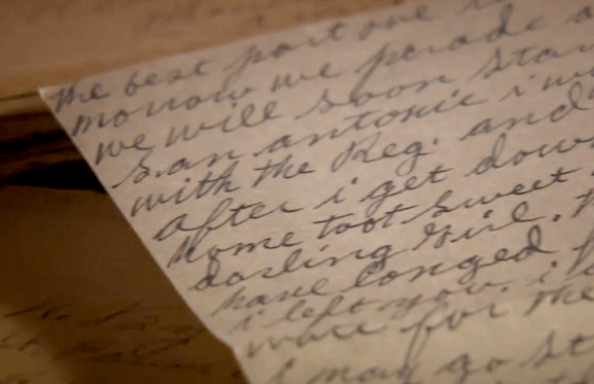 The best part one
morrow we parade a
we will soon star
San antonio i w
with the Reg. and
after i get down
home toot sweet
darling girl.
have longed f
i left you. i
wait for the
I may go st